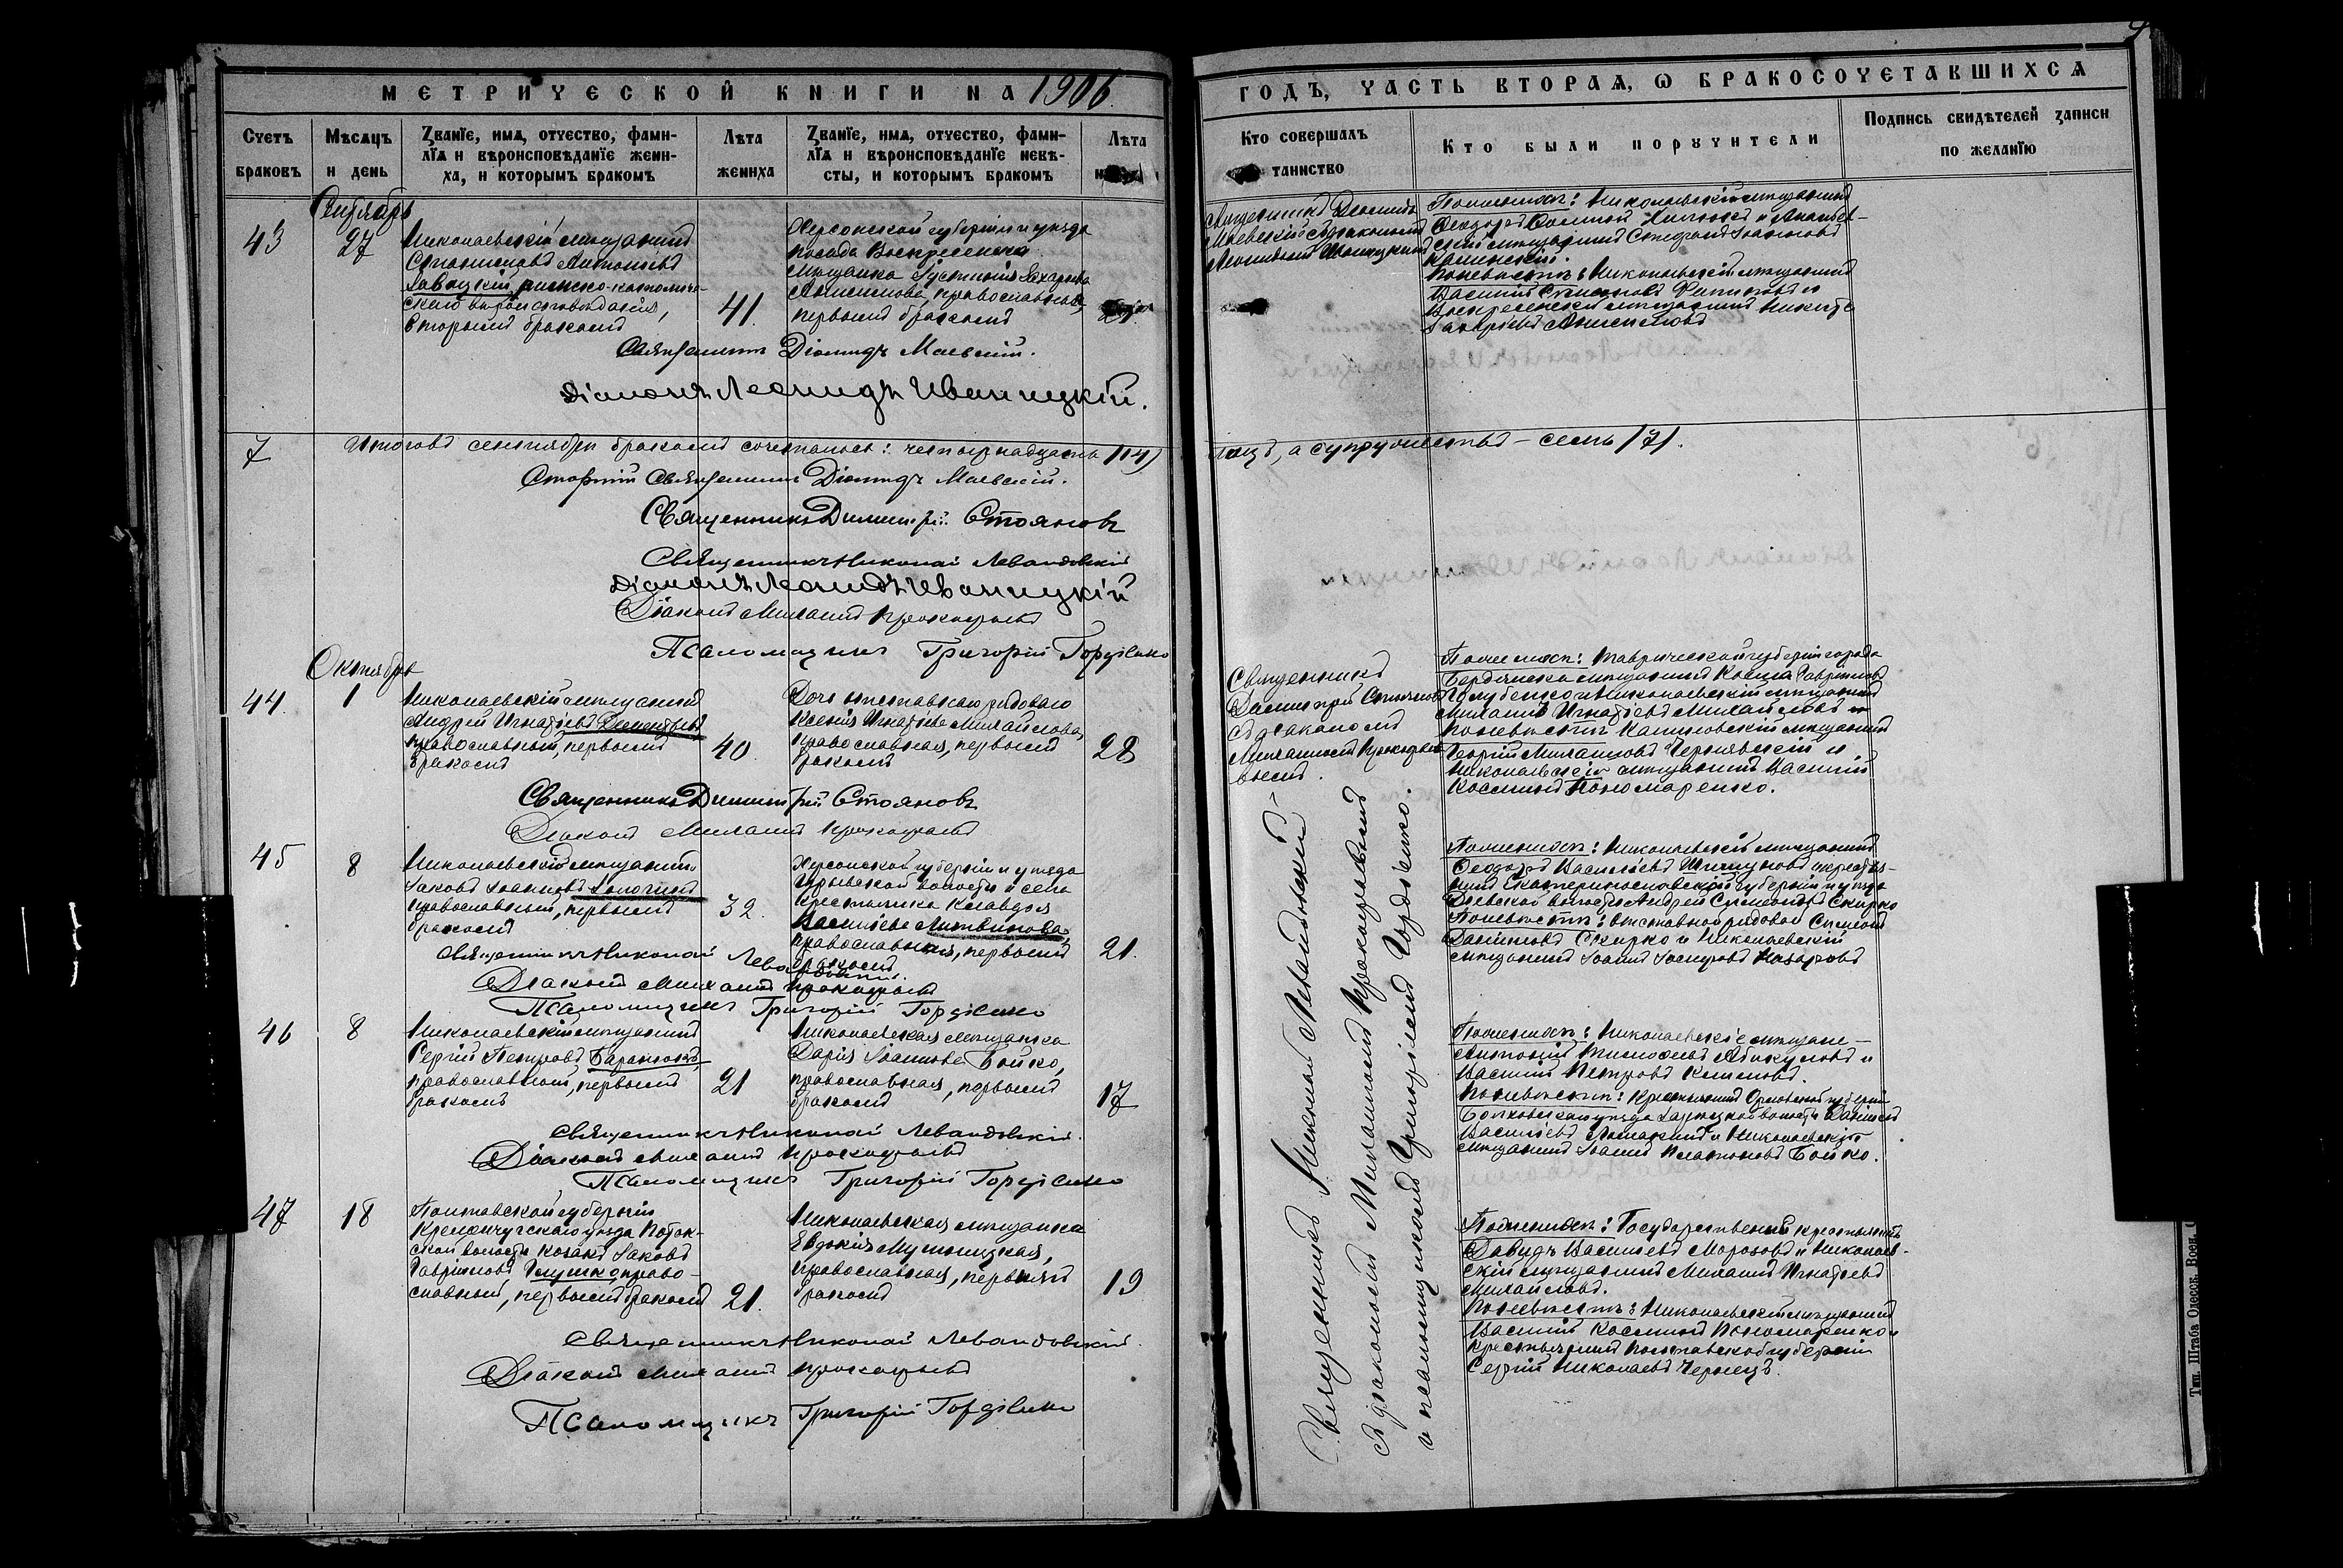 МЕТРИЧЕСКОЙ КНИГИ НА 1906
ГОДЪ, ЧАСТЬ ВТОРАЯ, Ѡ БРАКОСОЧЕТАВШИХСЯ
Счетъ браковъ
Мѣсяцъ и день
Званїе, имя, отчество, фами-
лїя и вѣроисповѣданїе жени-
ха, и которымъ бракомъ
Лѣта жениха
Званїе, имя, отчество, фами-
лїя и вѣроисповѣданїе невѣ-
сты, и которымъ бракомъ
Лѣта
Кто совершалъ
таинство
Кто были поручители
Подпись свидѣтелей записи
по желанїю
Сентябрь
43
27
Николаевскій мѣщанинъ
Станиславъ Антоновъ
Савицкій, римско-католиче-
скаго вѣроисповѣданія,
вторымъ бракомъ
41.
Херсонской губерніи и уѣзда
посада Воскресенска
мѣщанка Іустинія Захарьева
Анисимова, православная,
первымъ бракомъ
Священникъ Діомидъ
Маевскій съ діакономъ
Леонидомъ Иваницкимъ
По женихѣ: Николаевскій мѣщанинъ
Ѳеодоръ и Ананьев-
скій мѣщанинъ Стефанъ Іоанновъ
Калинскій.
По невѣстѣ: Николаевскій мѣщанинъ
Василій Филиповъ и
Воскресенскій мѣщанинъ Никита
Захаріевъ Анисимовъ
Священникъ Діомидъ Маевскій.
Діаконъ Леонидъ Иваницкій.
7
Итого въ сентябрѣ бракомъ сочеталось: четырнадцать /14/
лицъ, а супружествъ – семь /7/.
Старшій Священникъ Діомидъ Маевскій.
Священникъ Димитрій Стояновъ
Священникъ Николай Левандовскій
Діаконъ Леонидъ Иваницкій
Діаконъ Михаилъ Прокофьевъ
Псаломщикъ Григорій Гордіенко
Октябрь
44.
1
Николаевскій мѣщанинъ
Андрей Игнатіевъ Дементьевъ,
православный, первымъ
бракомъ
40.
Дочь отставнаго рядоваго
Ксенія Игнатіева Михайлова,
православная, первымъ
бракомъ
28
Священникъ
Димитрій Стояновъ
съ діакономъ
Михаиломъ Прокофье-
вымъ.
По женихѣ: Таврической губерніи города
Бердянска мѣщанинъ Косма Гавриловъ
Голубенко и Николаевскій мѣщанинъ
Михаилъ Игнатіевъ Михайловъ
По невѣстѣ мѣщанинъ
Георгій Михаиловъ Чернявскій и
Николаевскій мѣщанинъ Василій
Космынъ Пономаренко.
Священникъ Димитрій Стояновъ
Діаконъ Михаилъ Прокофьевъ
45
8
Николаевскій мѣщанинъ
Іаковъ Іоанновъ
православный, первымъ
бракомъ
32.
Херсонской губерніи и уѣзда
волости и села
крестьянка Клавдія
Васильева Литвинова,
православная, первымъ
бракомъ
21.
По женихѣ: Николаевскій мѣщанинъ
Ѳеодоръ Васильевъ и крестья-
нинъ Екатеринославской губерніи и уѣзда
волости Андрей Симеоновъ Скирко
По невѣстѣ: отставной рядовой Симеонъ
Даниловъ Скирко и Николаевскій
мѣщанинъ Іоаннъ Іосифовъ Назаровъ
Священникъ Николай Левандовскій.
Діаконъ Михаилъ Прокофьевъ
Псаломщикъ Григорій Гордіенко
46
8
Николаевскій мѣщанинъ
Сергій Петровъ Барановъ,
православный, первымъ
бракомъ
21
Николаевская мѣщанка
Дарія Іоаннова Бойко,
православная, первымъ
бракомъ
17
По женихѣ: Николаевскіе мѣщане –
Антоній Тимоѳеевъ Абакумовъ и
Василій Петровъ
По невѣстѣ: крестьянинъ Орловской губерніи
Болховскаго уѣзда волости
Васильевъ и Николаевскій
мѣщанинъ Іоаннъ Платоновъ Бойко.
Священникъ Николай Левандовскій.
Діаконъ Михаилъ Прокофьевъ
Псаломщикъ Григорій Гордіенко
47
18
Полтавской губерніи
Кременчугскаго уѣзда Поток-
ской волости козакъ Іаковъ
Гавриловъ Глушко, право-
славный, первымъ бракомъ
21.
Николаевская мѣщанка
Евдокія
православная, первымъ
бракомъ
19
По женихѣ: Государственный крестьянинъ
Давидъ Васильевъ Морозовъ и Николаев-
скій мѣщанинъ Михаилъ Игнатіевъ
Михайловъ.
По невѣстѣ: Николаевскій мѣщанинъ
Василій Космынъ Пономаренко и
крестьянинъ Полтавской губерніи
Сергій Николаевъ Чернецъ.
Священникъ Николай Левандовскій.
Діаконъ Михаилъ Прокофьевъ
Псаломщикъ Григорій Гордіенко
Священникъ Николай Левандовскій
съ діакономъ Михаиломъ Прокофьевымъ
и псаломщикомъ Григоріемъ Гордіенко.
Тип. Штаба Одесск. Воен.